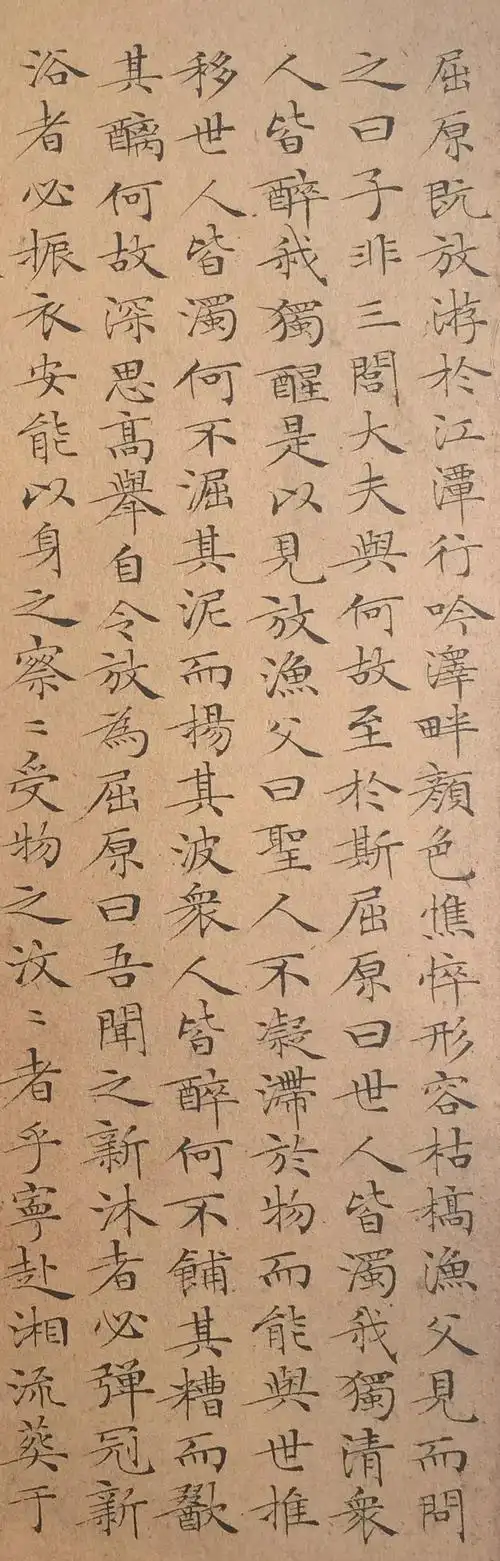 屈原既放游於江潭行吟澤畔顏色憔悴形容枯槁漁父見而問
之曰子非三閭大夫與何故至於斯屈原曰世人皆濁我獨清衆
人皆醉我獨醒是以見放漁父曰聖人不凝滯於物而能與世推
移世人皆濁何不淈其泥而揚其波衆人皆醉何不餔其糟而歠
其醨何故深思高舉自令放為屈原曰吾聞之新沐者必弹冠新
浴者必振衣安能以身之察〻受物之汶〻者乎寧赴湘流葬于